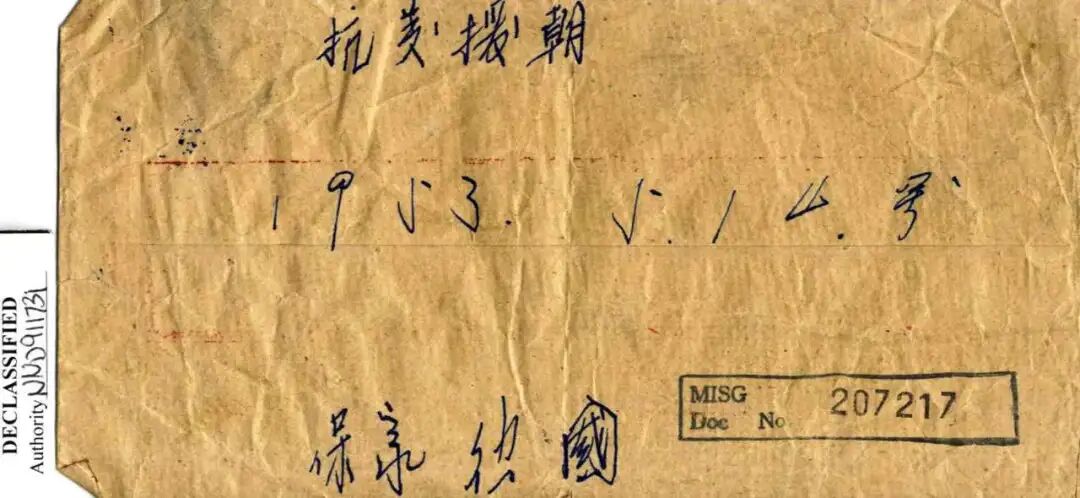 抗美援朝
1953. 5. 14. 号
保家伟國
MISG
Doc No 207217
DECLASSIFIED
Authority NND911731